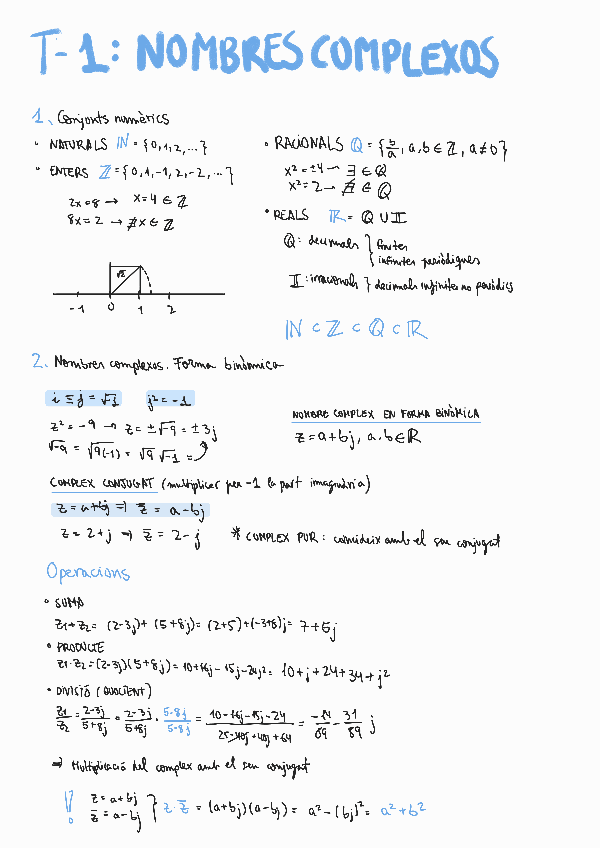 T-1: NOMBRES COMPLEXOS
1. Conjunts numèrics
• NATURALS ℕ = {0,1,2,...}
• ENTERS ℤ = {0,1,-1,2,-2,...}
2x=8 → x=4 ∈ ℤ
8x=2 → ∄x ∈ ℤ
√2
-1 0 1 2
• RACIONALS ℚ = {b/a, a,b ∈ ℤ, a≠0}
x² = ±4 → ∃ ∈ ℚ
x² = 2 → ∄ ∈ ℚ
• REALS ℝ = ℚ ∪ 𝕀
ℚ: decimals } finites
infinites periòdiques
𝕀: irracionals } decimals infinites no periòdics
ℕ ⊂ ℤ ⊂ ℚ ⊂ ℝ
2. Nombres complexos. Forma binòmica
i ≡ j = √-1 j² = -1
z² = -9 → z = ±√-9 = ±3j
√-9 = √9(-1) = √9 √-1 =
NOMBRE COMPLEX EN FORMA BINÒMICA
z = a+bj, a,b ∈ ℝ
COMPLEX CONJUGAT (multiplicar per -1 la part imaginària)
z = a+bj ⇒ z̄ = a-bj
z = 2+j ⇒ z̄ = 2-j * COMPLEX PUR: coincideix amb el seu conjugat
Operacions
• SUMA
z₁+z₂ = (2-3j)+(5+8j) = (2+5)+(-3+8)j = 7+5j
• PRODUCTE
z₁·z₂ = (2-3j)(5+8j) = 10+16j-15j-24j² = 10+j+24+34+j²
• DIVISIÓ (QUOCIENT)
z₁/z₂ = 2-3j/5+8j = 2-3j/5+8j · 5-8j/5-8j = 10-16j-15j-24/25-40j+40j+64 = -14/89 - 31/89 j
⇒ Multiplicació del complex amb el seu conjugat
!! z = a+bj
z̄ = a-bj } z·z̄ = (a+bj)(a-bj) = a²-(bj)² = a²+b²